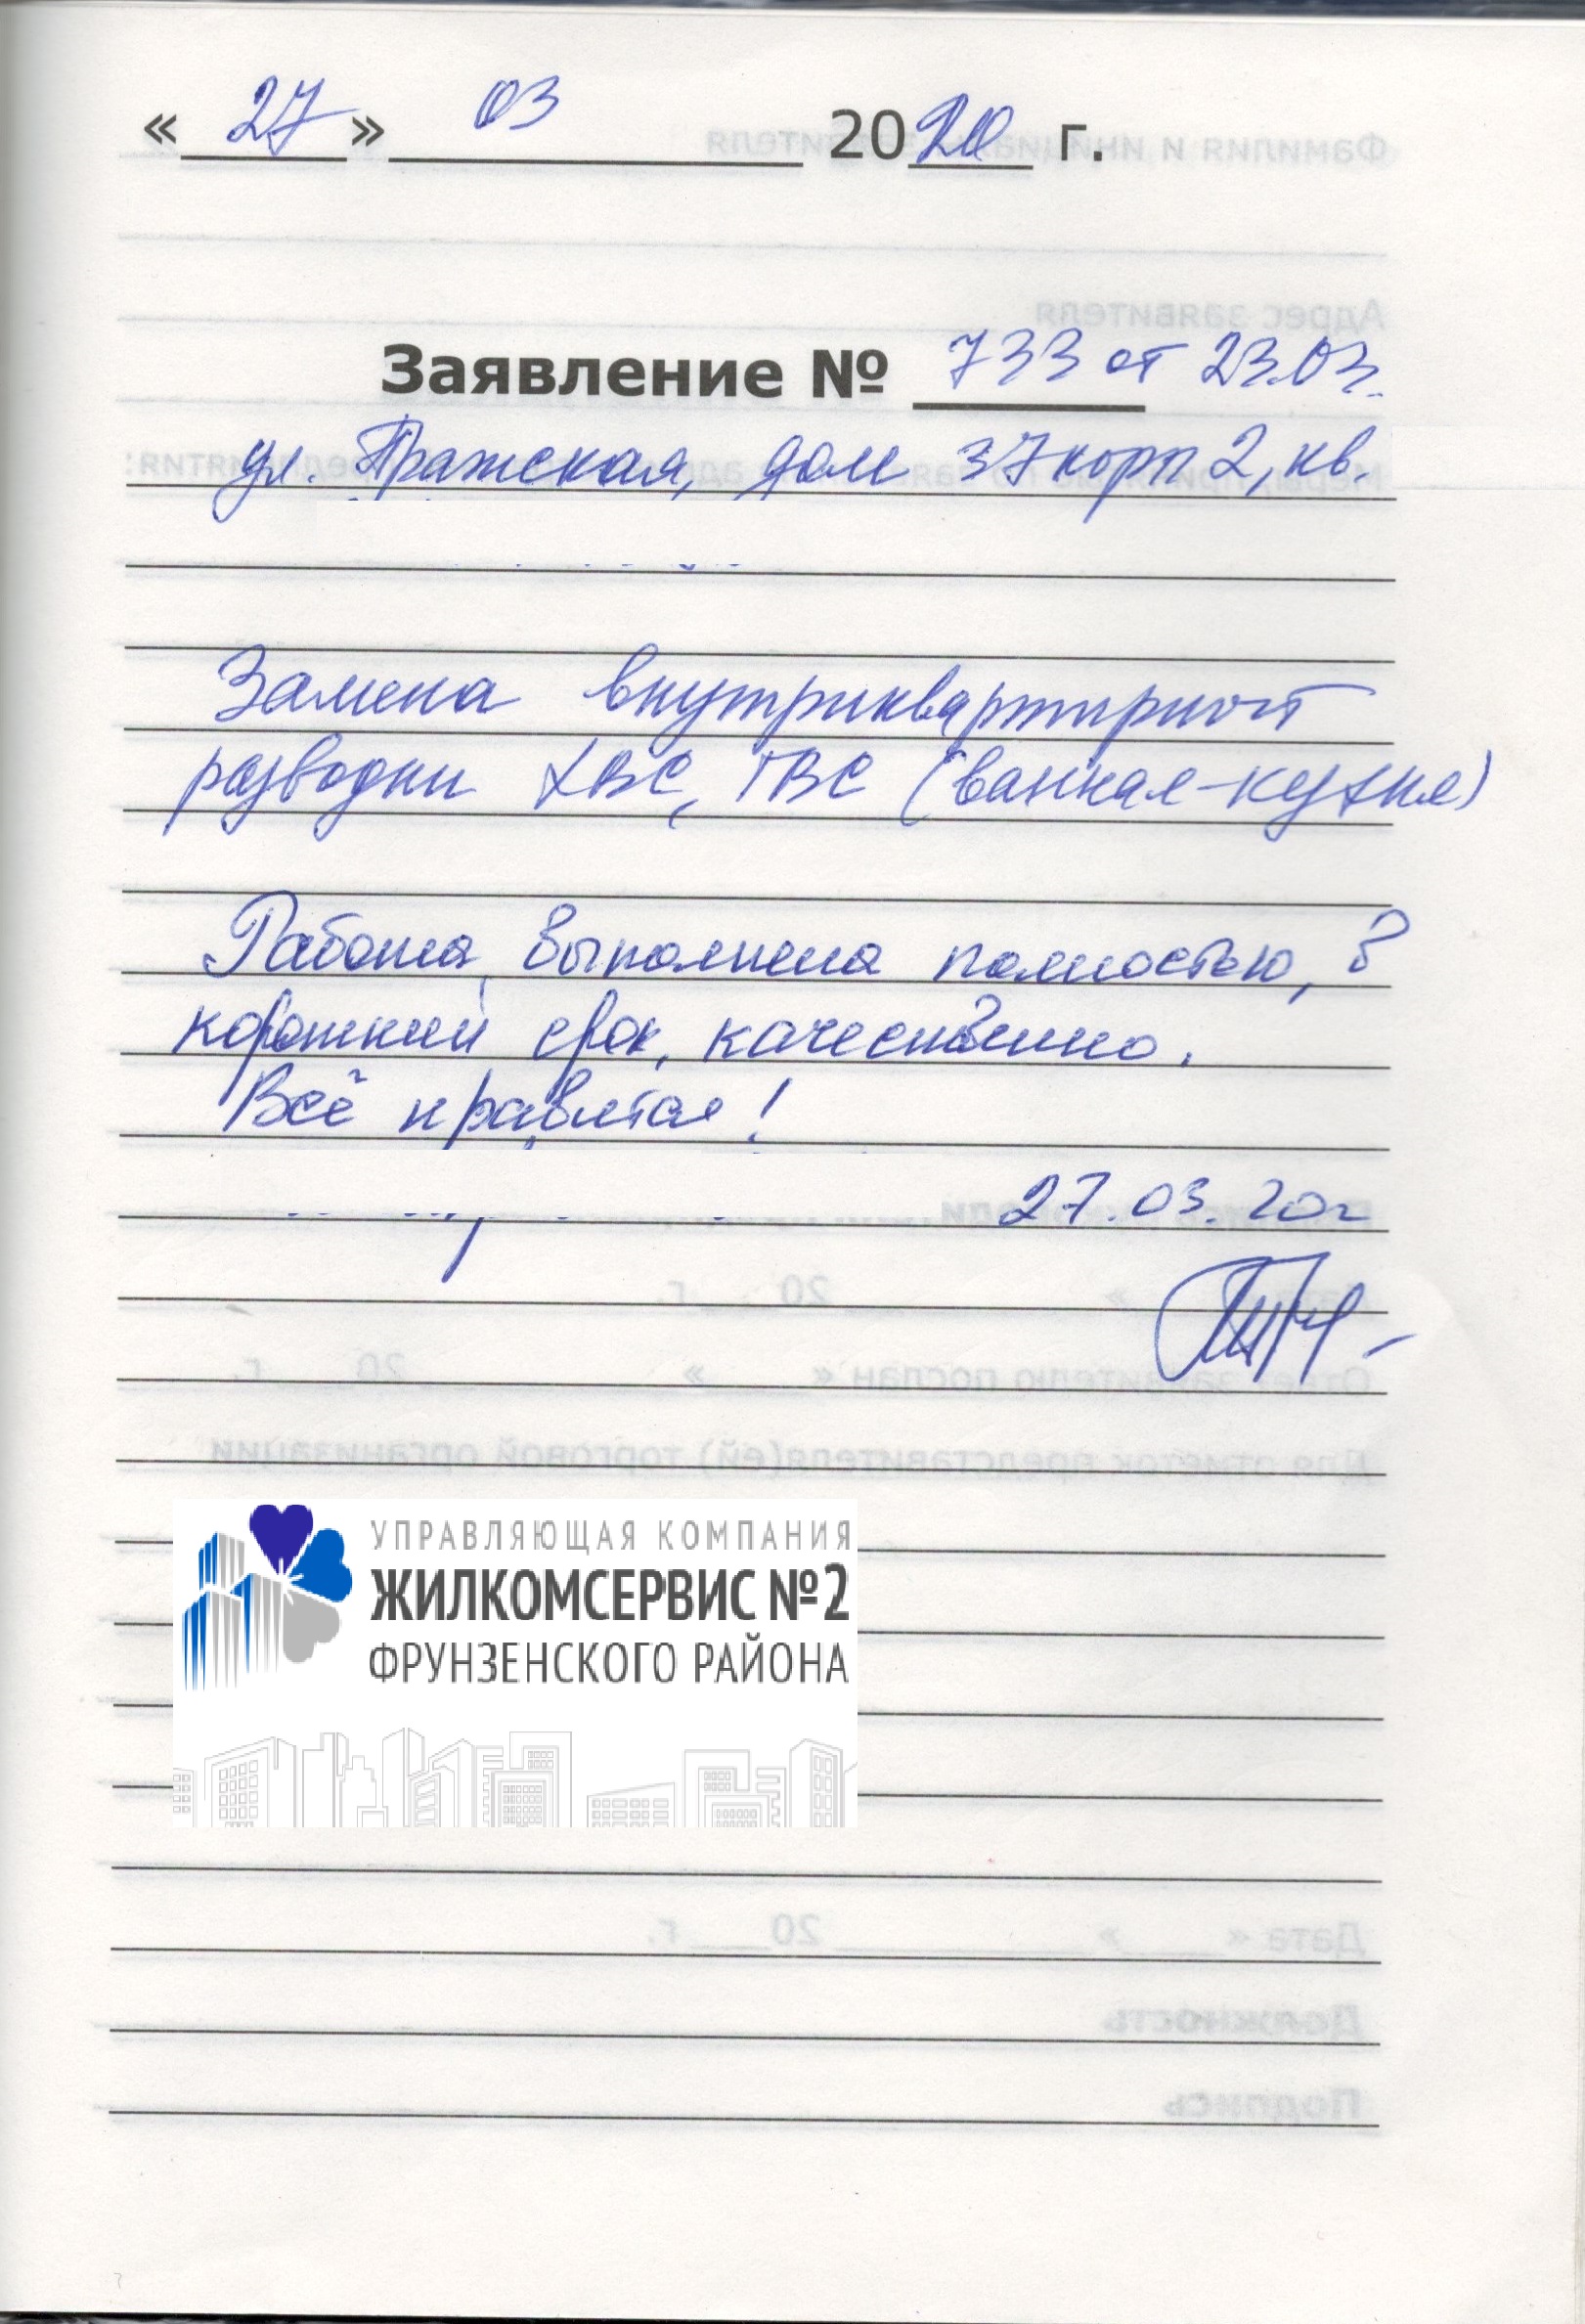 « 27 » 03 2020 г.
Заявление № 733 от 23.03.
ул. Пражская, дом 37 корп 2, кв.
Замена внутриквартирной
разводки ХВС, ГВС (ванная-кухня)
Работа выполнена полностью, в
короткий срок, качественно.
Всё нравится!
27.03.20г
УПРАВЛЯЮЩАЯ КОМПАНИЯ
ЖИЛКОМСЕРВИС №2
ФРУНЗЕНСКОГО РАЙОНА